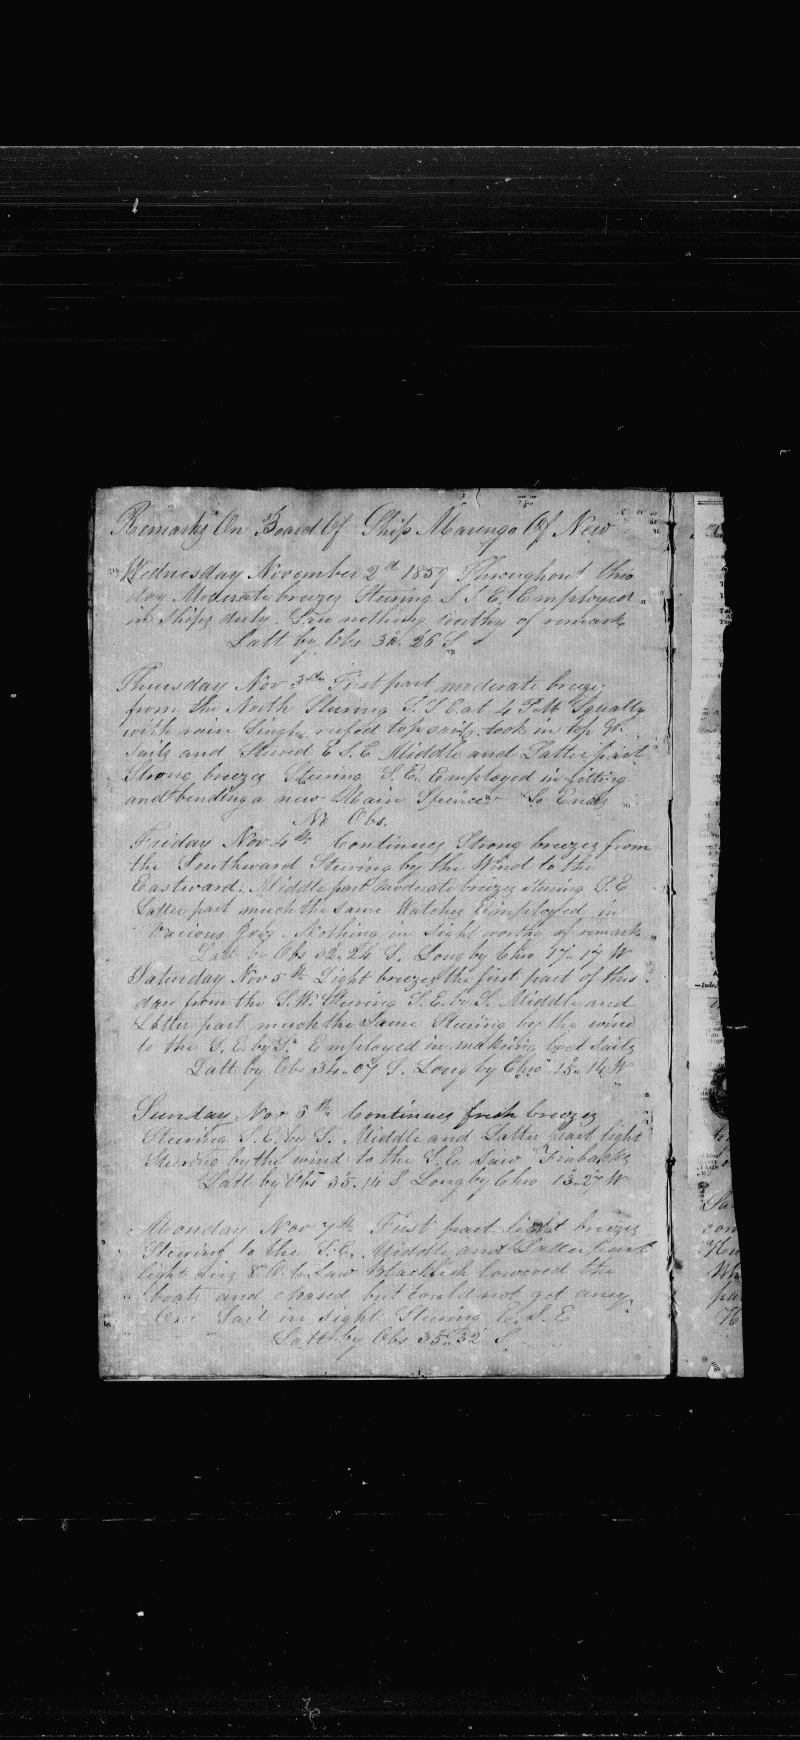 Remarks On Board Of Ship Marengo Of New
Wednesday November 2d 1859 Throughout this
day Moderate breezes Steering S S E. Employed
in ships duty. Saw nothing worthy of remark
Latt by Obs 32. 26 S
Thursday Nov 3rd First part moderate breezes
from the North Steering S. S E. at 4 P.M. Squally
with rain Single reefed top sails, took in top Gt
sails and Steered E S. E Middle and Latter part
Strong breezes Steering S. E. Employed in fitting
and bending a new Main Spencer So Ends
No Obs.
Friday Nov 4th Continues Strong breezes from
the Southward Steering by the Wind to the
Eastward. Middle part moderate breezes steering S. E
Latter part much the same Watches Employed in
Various Jobs. Nothing in Sight worthy of remark
Latt by Obs 32. 24 S. Long by Chro 17. 17 W
Saturday Nov 5th Light breezes the first part of this
day from the S. W. Steering S. E. by S. Middle and
Latter part much the Same Steering by the wind
to the S. E. by S. Employed in making boat sails
Latt by Obs 34. 07 S. Long by Chro 15. 14 W
Sunday Nov 6th Continues fresh breezes
Steering S. E. by S. Middle and Latter part light
Steering by the wind to the S. E. Saw Finbacks
Latt by Obs 35. 14 S Long by Chro 13. 27 W
Monday Nov 7th First part light breezes
Steering to the S. E. Middle and Latter part
light airs 8 A. M. Saw Blackfish lowered the
boats and chased but could not get any
One Sail in sight Steering E. S. E
Latt by Obs 35. 32 S